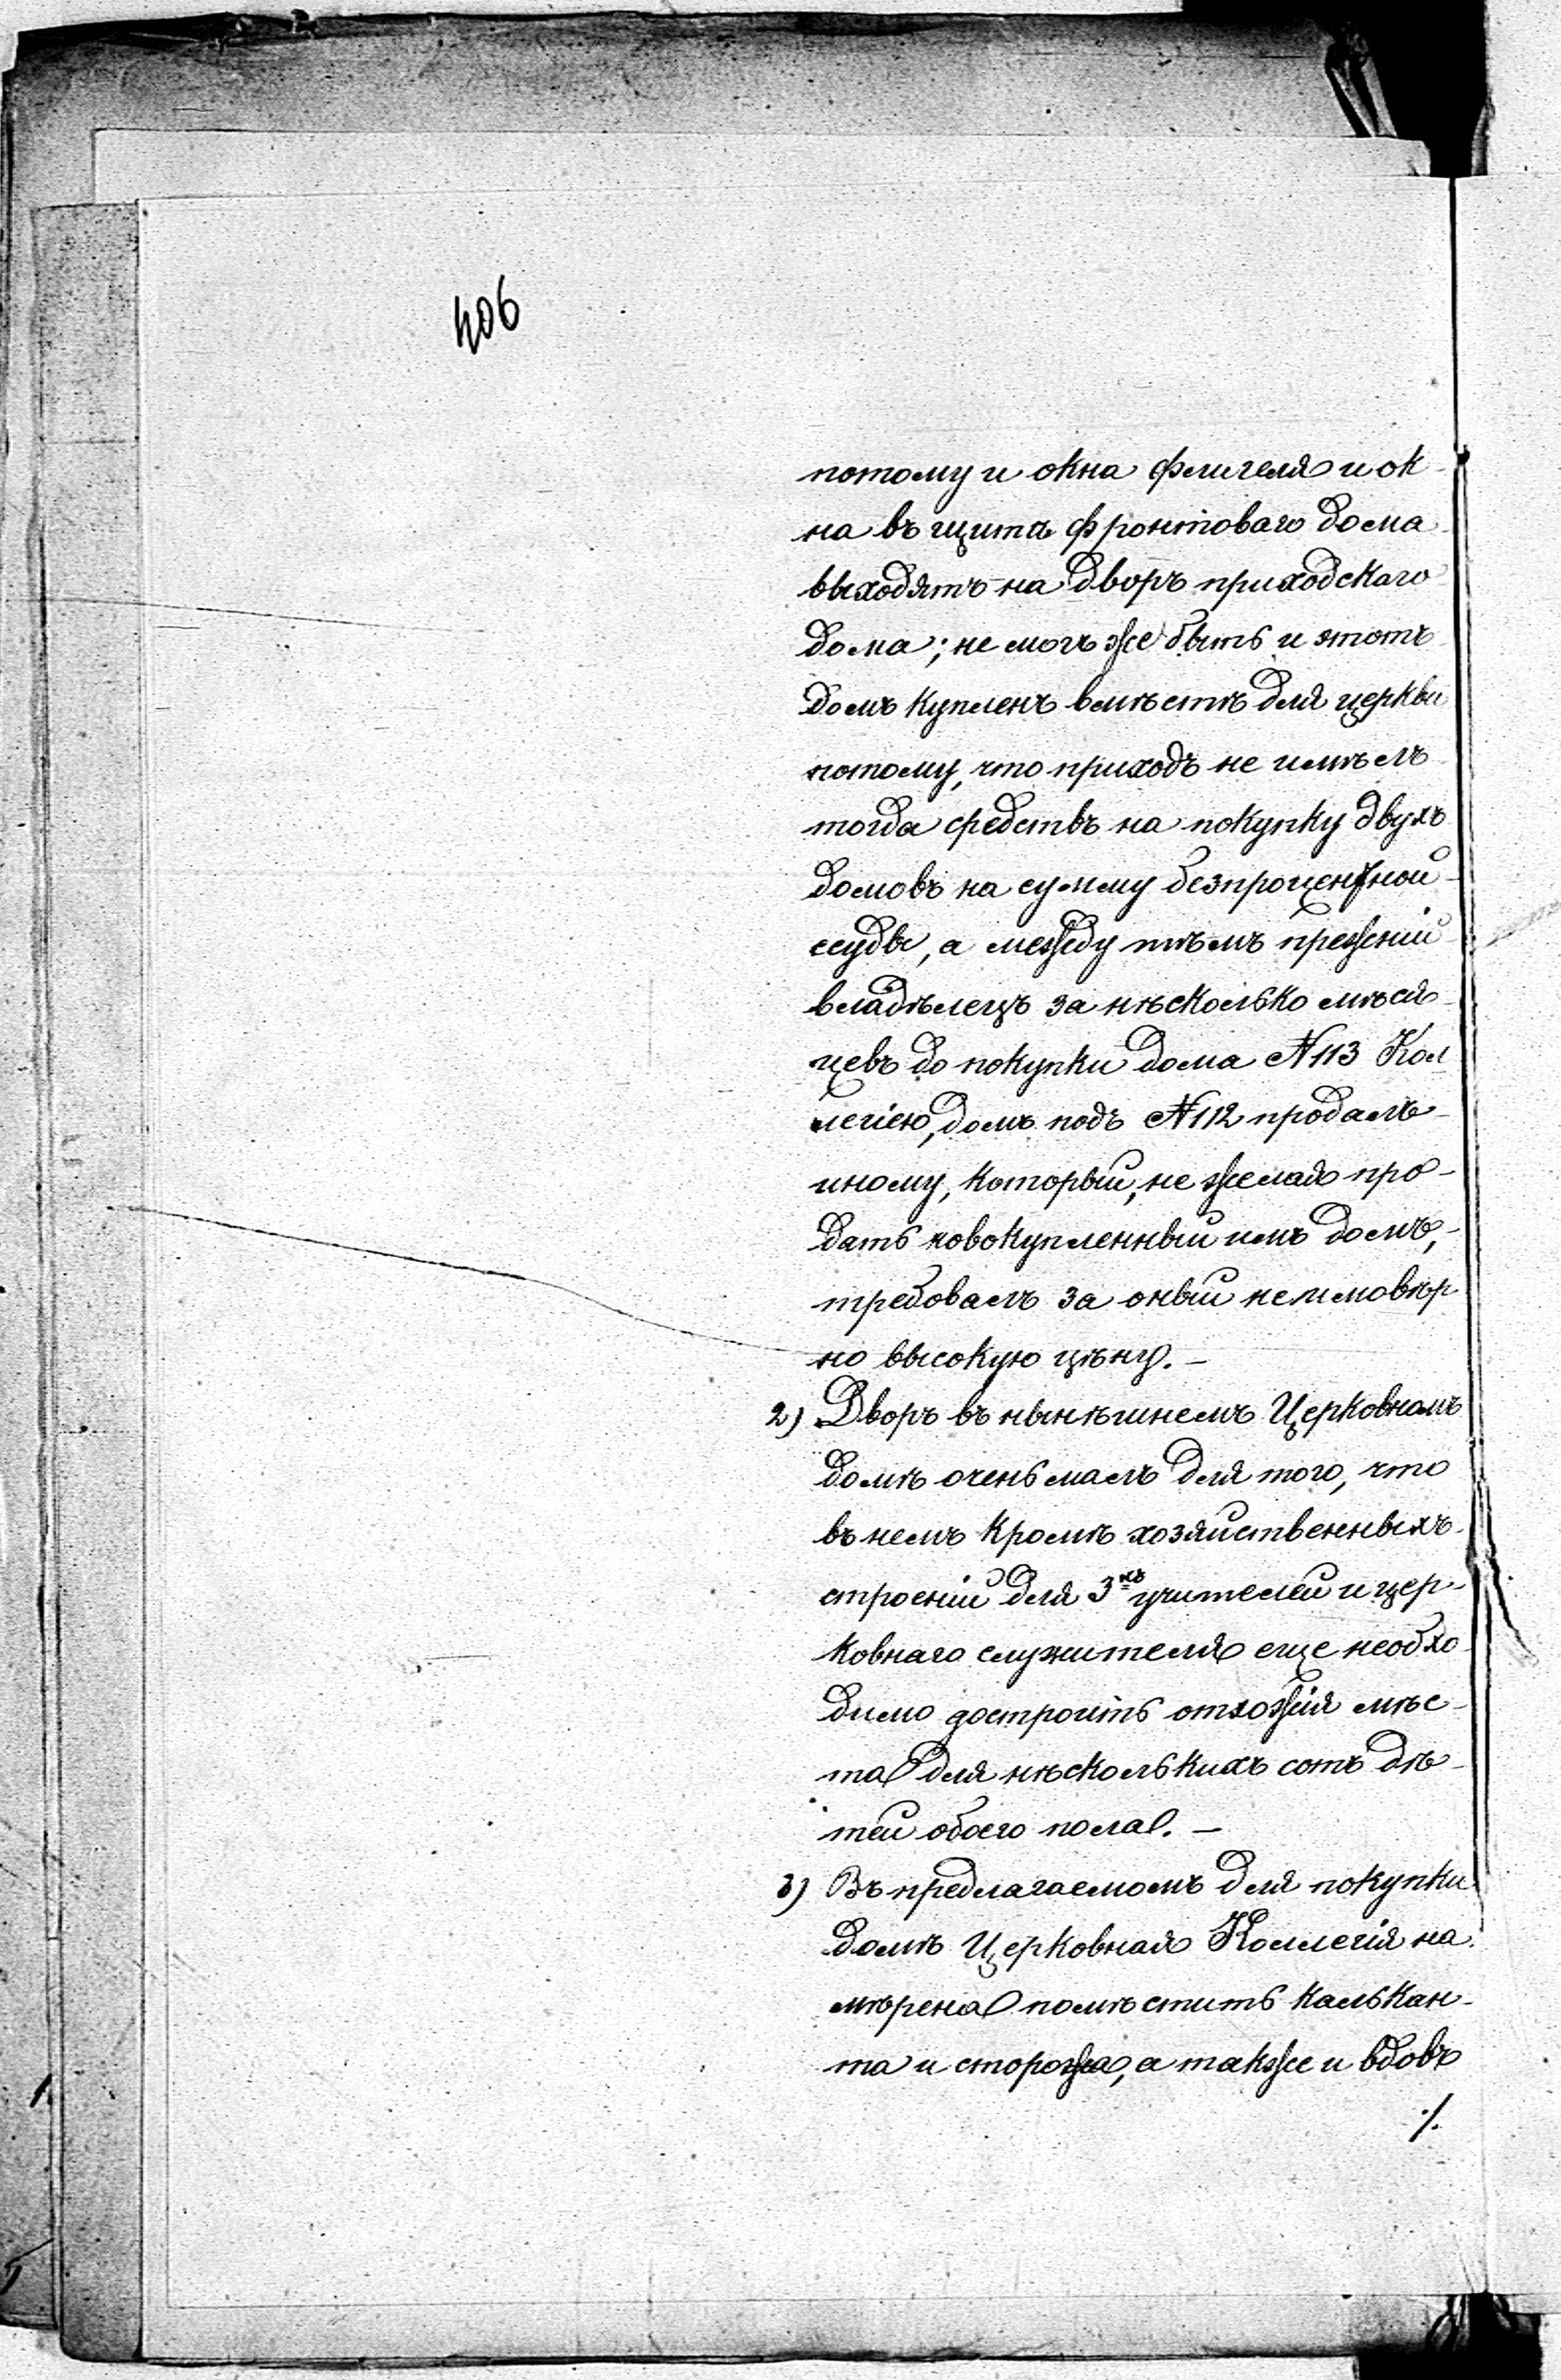 406
потому и окна флигеля и ок-
на въ щитѣ фронтоваго дома
выходятъ на дворъ приходскаго
дома; не могъ же быть и этотъ
домъ купленъ вмѣстѣ для церкви
потому, что приходъ не имѣлъ
тогда средствъ на покупку двухъ
домовъ на сумму безпроцентной
ссуды, а между тѣмъ прежній
владѣлецъ за нѣсколько мѣся-
цевъ до покупки дома N 113 Кол
легіею, домъ подъ N 112 продалъ
иному, который, не желая про-
дать новокупленный имъ домъ,
требовалъ за оный неимовѣр
но высокую цѣну. —
2) Дворъ въ нынѣшнемъ Церковномъ
домѣ очень малъ для того, что
въ немъ кромѣ хозяйственныхъ
строеній для 3хъ учителей и цер-
ковнаго служителя еще необхо-
димо достроить отхожія мѣс-
та для нѣсколькихъ сотъ дѣ-
тей обоего пола. —
3) Въ предлагаемомъ для покупки
домѣ Церковная Коллегія на
мѣрена помѣстить калькан-
та и сторожа, а также и вдовъ
./.